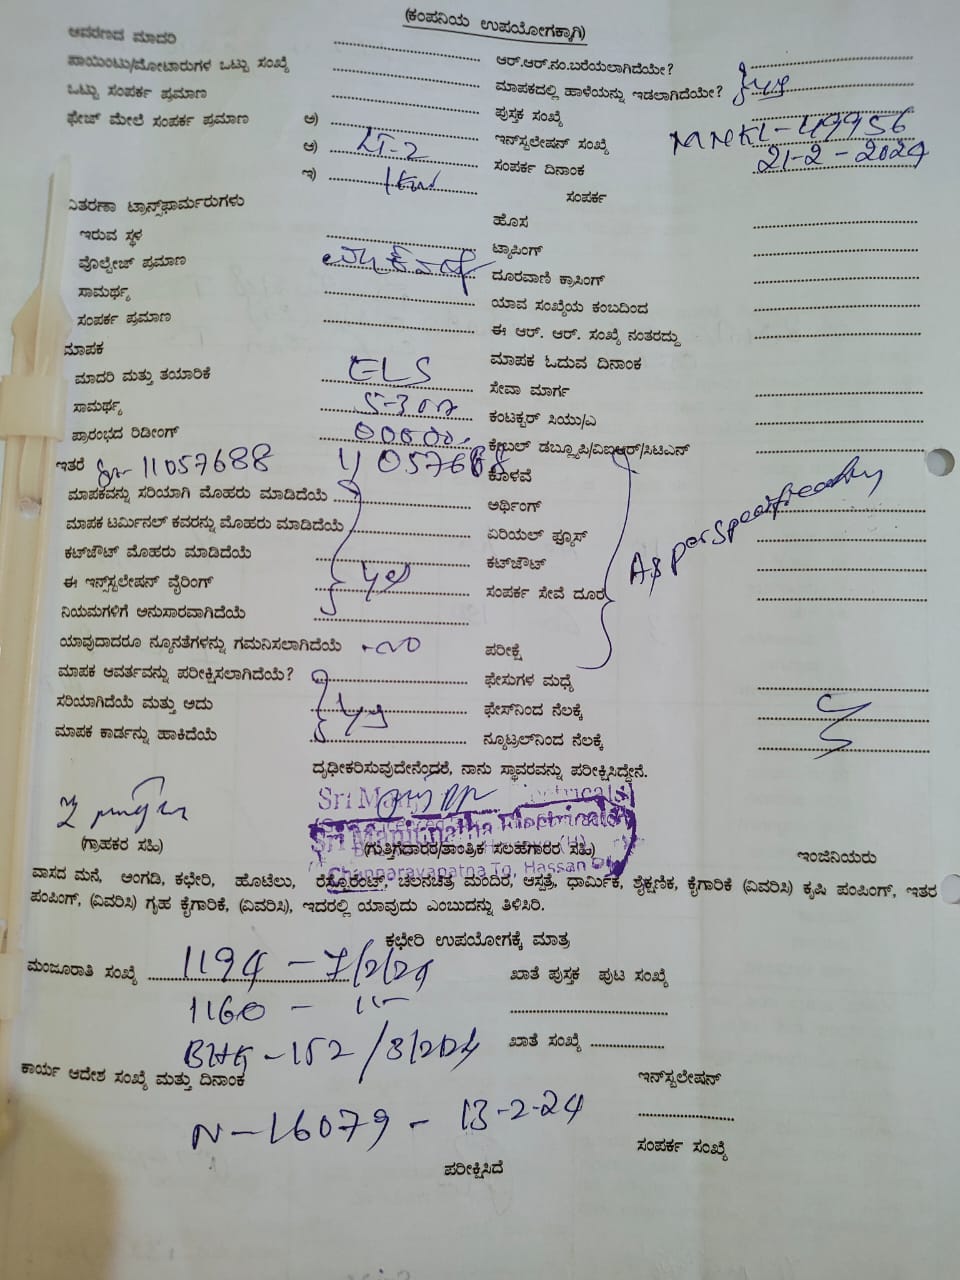 (ಕಂಪನಿಯ ಉಪಯೋಗಕ್ಕಾಗಿ)
ಆವರಣದ ಮಾದರಿ
ಪಾಯಿಂಟು/ಮೋಟಾರುಗಳ ಒಟ್ಟು ಸಂಖ್ಯೆ
ಒಟ್ಟು ಸಂಪರ್ಕ ಪ್ರಮಾಣ
ಫೇಜ್ ಮೇಲೆ ಸಂಪರ್ಕ ಪ್ರಮಾಣ ಅ)
ಆ) LT-2
ಇ) 1KW
ವಿತರಣಾ ಟ್ರಾನ್ಸ್‌ಫಾರ್ಮರುಗಳು
ಇರುವ ಸ್ಥಳ
ವೋಲ್ಟೇಜ್ ಪ್ರಮಾಣ
ಸಾಮರ್ಥ್ಯ
ಸಂಪರ್ಕ ಪ್ರಮಾಣ
ಮಾಪಕ
ಮಾದರಿ ಮತ್ತು ತಯಾರಿಕೆ ELS
ಸಾಮರ್ಥ್ಯ 5-30
ಪ್ರಾರಂಭದ ರಿಡೀಂಗ್ 00000
ಇತರೆ 11057688 11057688
ಮಾಪಕವನ್ನು ಸರಿಯಾಗಿ ಮೊಹರು ಮಾಡಿದೆಯೆ
ಮಾಪಕ ಟರ್ಮಿನಲ್ ಕವರನ್ನು ಮೊಹರು ಮಾಡಿದೆಯೆ
ಕಟ್‌ಔಟ್ ಮೊಹರು ಮಾಡಿದೆಯೆ
ಈ ಇನ್ಸ್‌ಟಲೇಷನ್ ವೈರಿಂಗ್ yes
ನಿಯಮಗಳಿಗೆ ಅನುಸಾರವಾಗಿದೆಯೆ
ಯಾವುದಾದರೂ ನ್ಯೂನತೆಗಳನ್ನು ಗಮನಿಸಲಾಗಿದೆಯೆ no
ಮಾಪಕ ಆವರ್ತವನ್ನು ಪರೀಕ್ಷಿಸಲಾಗಿದೆಯೆ?
ಸರಿಯಾಗಿದೆಯೆ ಮತ್ತು ಅದು yes
ಮಾಪಕ ಕಾರ್ಡನ್ನು ಹಾಕಿದೆಯೆ
ಆರ್.ಆರ್.ನಂ.ಬರೆಯಲಾಗಿದೆಯೇ?
ಮಾಪಕದಲ್ಲಿ ಹಾಳೆಯನ್ನು ಇಡಲಾಗಿದೆಯೇ? yes
ಪುಸ್ತಕ ಸಂಖ್ಯೆ
ಇನ್‌ಸ್ಟಲೇಷನ್ ಸಂಖ್ಯೆ MNKL-49956
ಸಂಪರ್ಕ ದಿನಾಂಕ 21-2-2024
ಸಂಪರ್ಕ
ಹೊಸ
ಟ್ಯಾಪಿಂಗ್
ದೂರವಾಣಿ ಕ್ರಾಸಿಂಗ್
ಯಾವ ಸಂಖ್ಯೆಯ ಕಂಬದಿಂದ
ಈ ಆರ್. ಆರ್. ಸಂಖ್ಯೆ ನಂತರದ್ದು
ಮಾಪಕ ಓದುವ ದಿನಾಂಕ
ಸೇವಾ ಮಾರ್ಗ
ಕಂಟಕ್ಟರ್ ಸಿಯು/ಎ
ಕೇಬಲ್ ಡಬ್ಲ್ಯೂಪಿ/ವಿಐಆರ್/ಸಿಟಿಎನ್
ಕೊಳವೆ
ಅರ್ಥಿಂಗ್
ಏರಿಯಲ್ ಫ್ಯೂಸ್
ಕಟ್‌ಔಟ್
ಸಂಪರ್ಕ ಸೇವೆ ದೂರ
As per
ಪರೀಕ್ಷೆ
ಫೇಸುಗಳ ಮಧ್ಯೆ
ಫೇಸ್‌ನಿಂದ ನೆಲಕ್ಕೆ
ನ್ಯೂಟ್ರಲ್‌ನಿಂದ ನೆಲಕ್ಕೆ
ದೃಢೀಕರಿಸುವುದೇನೆಂದರೆ, ನಾನು ಸ್ಥಾವರವನ್ನು ಪರೀಕ್ಷಿಸಿದ್ದೇನೆ.
Sri Manjunatha Electricals
Channarayapatna Tq, Hassan
(ಗ್ರಾಹಕರ ಸಹಿ) (ಗುತ್ತಿಗೆದಾರರ/ತಾಂತ್ರಿಕ ಸಲಹೆಗಾರರ ಸಹಿ) ಇಂಜಿನಿಯರು
ವಾಸದ ಮನೆ, ಅಂಗಡಿ, ಕಛೇರಿ, ಹೊಟೆಲು, ರೆಸ್ಟೊರೆಂಟ್, ಚಲನಚಿತ್ರ ಮಂದಿರ, ಆಸ್ಪತ್ರೆ, ಧಾರ್ಮಿಕ, ಶೈಕ್ಷಣಿಕ, ಕೈಗಾರಿಕೆ (ವಿವರಿಸಿ) ಕೃಷಿ ಪಂಪಿಂಗ್, ಇತರ
ಪಂಪಿಂಗ್, (ವಿವರಿಸಿ) ಗೃಹ ಕೈಗಾರಿಕೆ, (ವಿವರಿಸಿ), ಇದರಲ್ಲಿ ಯಾವುದು ಎಂಬುದನ್ನು ತಿಳಿಸಿರಿ.
ಕಛೇರಿ ಉಪಯೋಗಕ್ಕೆ ಮಾತ್ರ
ಮಂಜೂರಾತಿ ಸಂಖ್ಯೆ 1194 - 7/2/24 ಖಾತೆ ಪುಸ್ತಕ ಪುಟ ಸಂಖ್ಯೆ
1160 -
BHK-152/8/2/24 ಖಾತೆ ಸಂಖ್ಯೆ
ಕಾರ್ಯ ಆದೇಶ ಸಂಖ್ಯೆ ಮತ್ತು ದಿನಾಂಕ ಇನ್‌ಸ್ಟಲೇಷನ್
N-16079 - 13-2-24
ಸಂಪರ್ಕ ಸಂಖ್ಯೆ
ಪರೀಕ್ಷಿಸಿದೆ